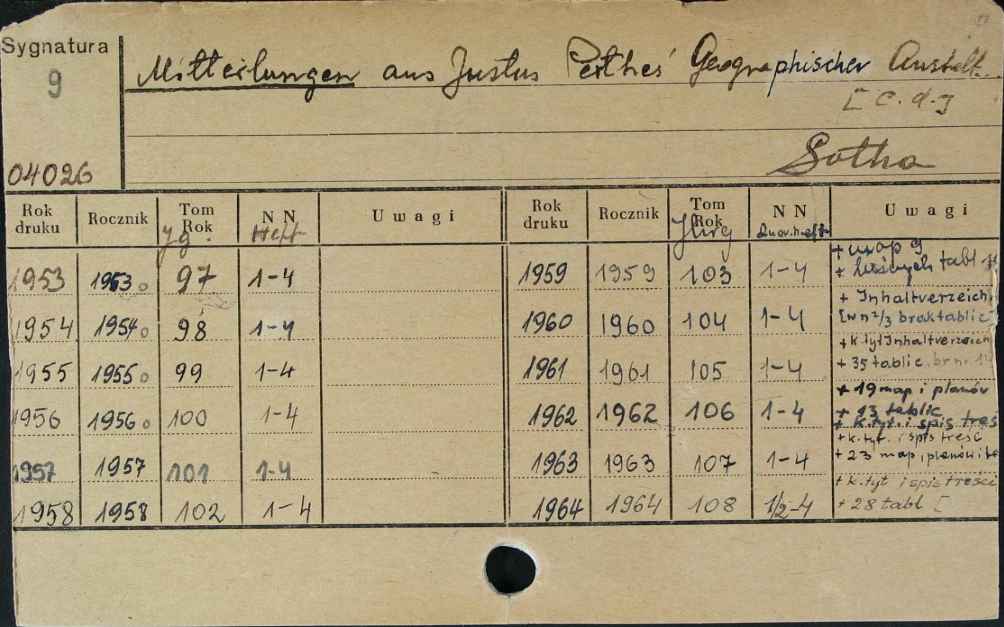 Sygnatura
9
04026
Mitteilungen aus Justus Perthes' Geographischer Anstalt
[C. d.]
Gotha
Rok druku Rocznik Tom Rok Jg. NN Heft Uwagi
1953 1953 97 1-4
1954 1954 98 1-4
1955 1955 99 1-4
1956 1956 100 1-4
1957 1957 101 1-4
1958 1958 102 1-4
Rok druku Rocznik Tom Rok NN Uwagi
1959 1959 103 1-4 + map 9
+ tabl
1960 1960 104 1-4 + Inhaltverzeich
[w n 2/3 brak tablic]
1961 1961 105 1-4 + k. tyt Inhaltverzeich
+ 35 tablic. br nr. 14
1962 1962 106 1-4 + 19 map i planów
+ 13 tablic
+ k. tyt. i spis treś
1963 1963 107 1-4 + k. tyt. i spis treść
+ 23 map, planów i
1964 1964 108 1/2-4 + k. tyt i spis treści
+ 28 tabl [